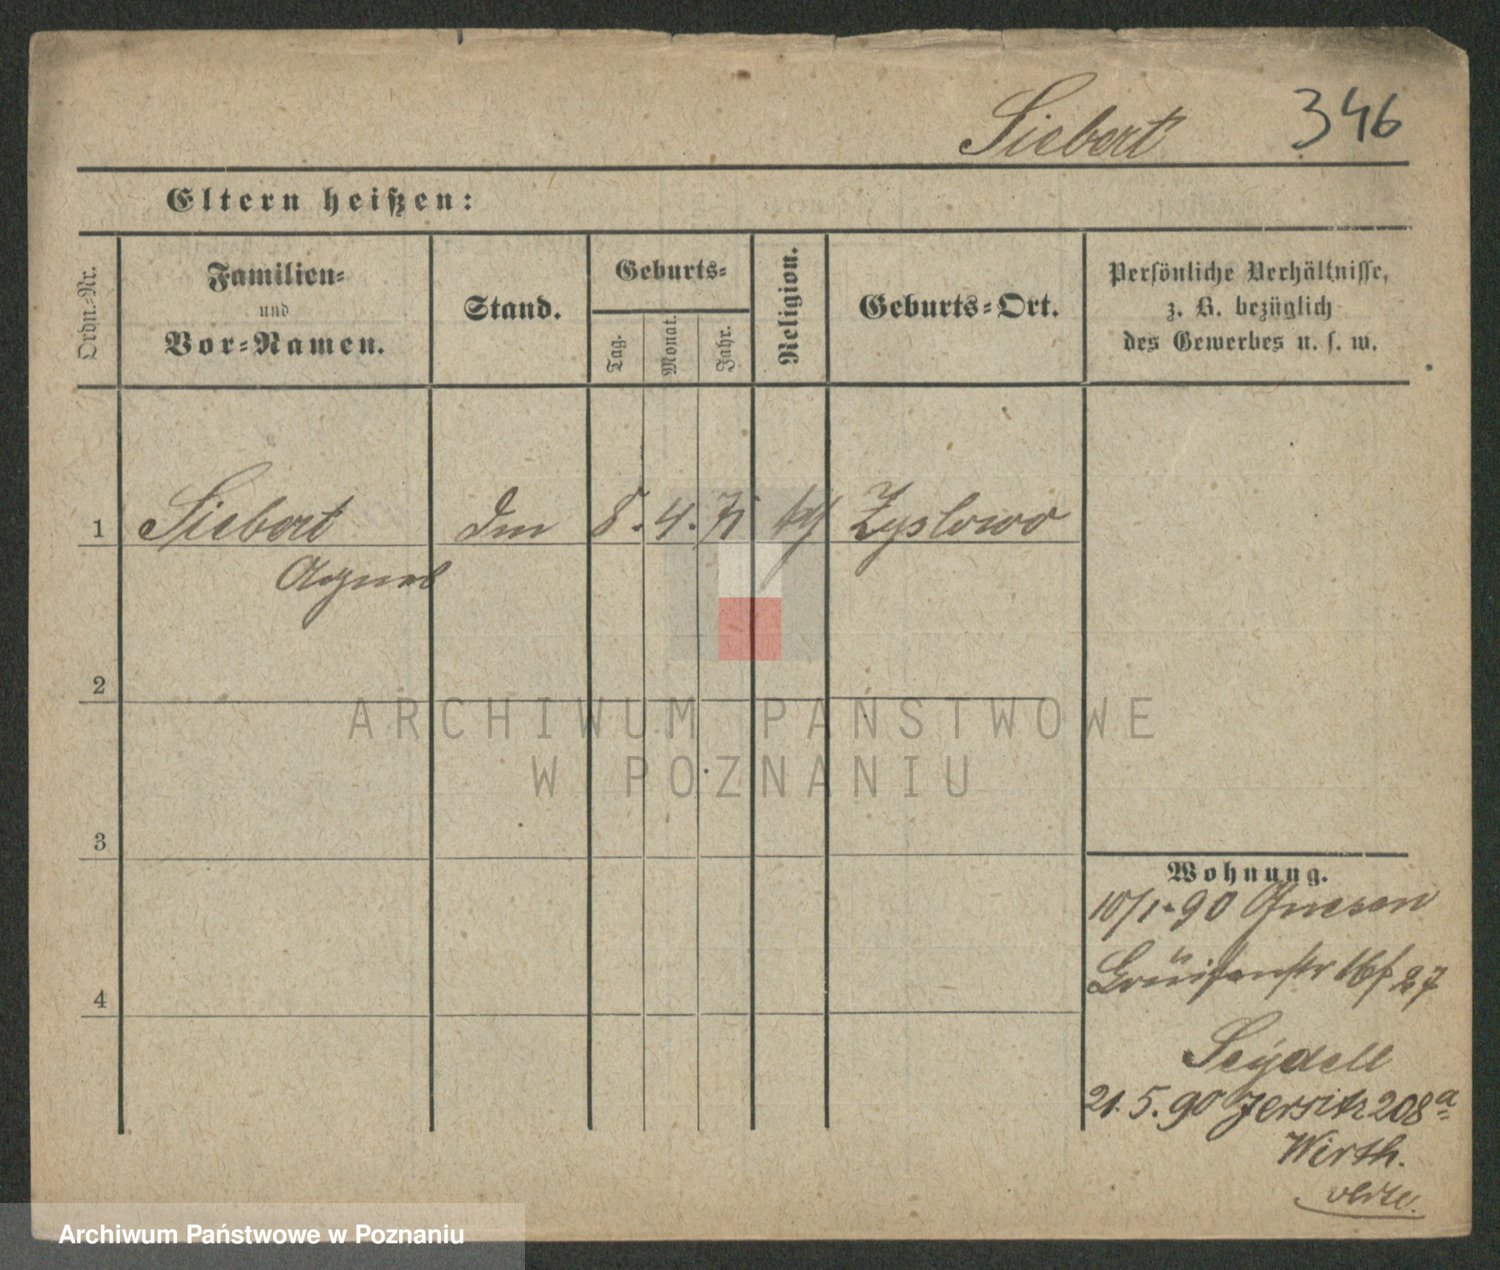 Siebert 346
Eltern heißen:
Ordn.-Nr.
Familien-
und
Vor-Namen.
Stand.
Geburts-
Tag.
Monat.
Jahr.
Religion.
Geburts-Ort.
Persönliche Verhältnisse,
z. B. bezüglich
des Gewerbes u. s. w.
1 Siebert 8. 4. 71 Zyslowo
Agnes
2
3
4
Wohnung.
10/1-90 Gnesen
27
Seydell
21. 5. 90 Jersitz 208a
Wirth.
ARCHIWUM PAŃSTWOWE
W POZNANIU
Archiwum Państwowe w Poznaniu